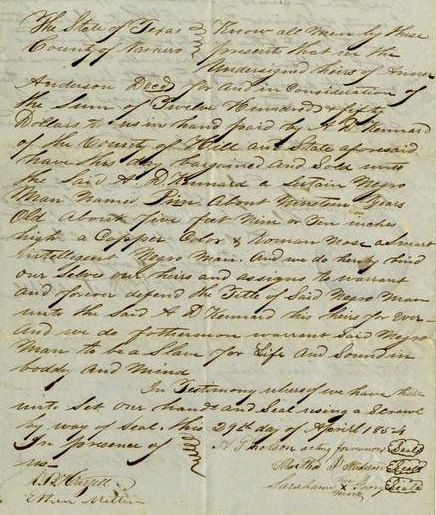 The State of Texas
County of Navarro
Know all Men by these
presents that we the
Undersigned heirs of
Anderson Decd for and in Consideration of
the Sum of Twelve Hundred & fifty
Dollars to us in hand paid by A D Kennard
of the County of Hill and State aforesaid
have this day bargained and Sold unto
the Said A. D. Kennard a Certain Negro
Man Named About Nineteen Years
Old About five feet Nine or Ten inches
high a Copper Color & Roman Nose a Smart
intellegent Negro Man. And we do hereby bind
our selves our heirs and assigns to warrant
and forever defend the Title of Said Negro Man
unto the Said A D Kennard his heirs for Ever
And we do farthermore warrant Said Negro
Man to be a Slave for Life and Sound in
boddy and Mind
In Testimony whereof we have here
unto Set our hands and Seal using a Scrawl
by way of Seal. this 29th day of Aprill 1854
In presence of
us
acting for minors Seal
Martha J. Seal
her
Sarahann X Seal
mark